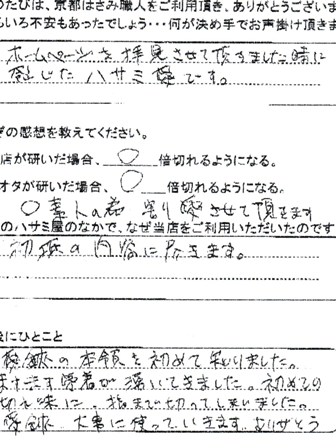 のたびは、京都はさみ職人をご利用頂き、ありがとうございま
ろいろ不安もあったでしょう・・・何が決め手でお声掛け頂きま
ホームページを拝見させて頂きました時に
感じたハサミ
です。
ぎの感想を教えてください。
店が研いだ場合、〇 倍切れるようになる。
オタが研いだ場合、〇 倍切れるようになる。
〇素人の為 割り
させて頂きます
のハサミ屋のなかで、なぜ当店をご利用いただいたのです
の内容に
きます。
後にひとこと
の本領を初めて知りました。
ますます愛着が湧いてきました。初めての
切れ味に、指まで切ってしまいました。
大事に使っていきます。ありがとう